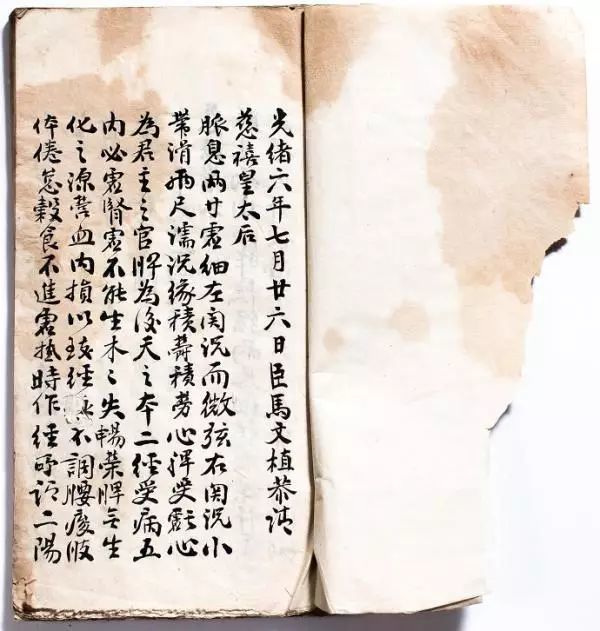 光緒六年七月廿六日臣馬文植恭請
慈禧皇太后
脈息兩寸虛細左関沉而微弦右関沉小
帶滑兩尺濡沉緣積鬱積勞心脾受虧心
為君主之官脾為後天之本二經受病五
内必虛腎虛不能生木〻失暢榮脾乏生
化之源營血内損以致經脉不調腰痠肢
体倦怠穀食不進虛熱時作經所謂二陽